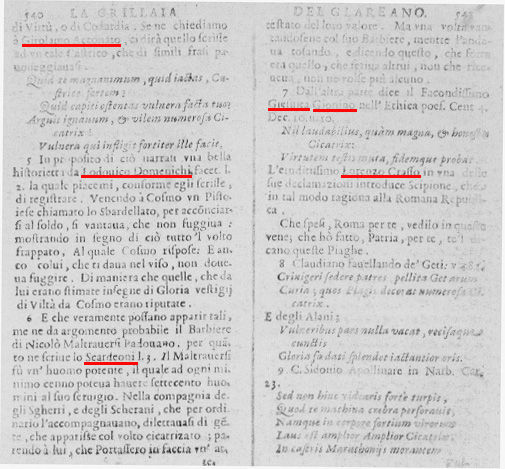 540 LA GRILLAIA
di Virtù, o di Codardia. Se ne chiediamo
à Girolamo Acconato, ci dirà quello scrisse
ad vn tale Castrico, che di simili frasi pa-
uoneggiaua:
Quid te magnanimum, quid iactas, Ca-
strice fortem?
Quid capiti ostentas vulnera facta tuo?
Arguis ignauum, & vilem numerosa Ci-
catrix:
Vulnera qui infligit fortiter ille facit.
5 In proposito di ciò narrasi vna bella
historietta da Lodouico Domenichi facet. l.
2. la quale piacemi, conforme egli scrisse,
di registrare. Venendo à Cosmo vn Pisto-
iese chiamato lo Sbardellato, per acconciar-
si al soldo, si vantaua, che non fuggiua:
mostrando in segno di ciò tutto 'l volto
frappato. Al quale Cosmo rispose: E an-
co colui, che ti daua nel viso, non doue-
ua fuggire. Di maniera che quelle, che da
lui erano stimate insegne di Gloria vestigij
di Viltà da Cosmo erano riputate.
6 E che veramente possano apparir tali,
me ne da argomento probabile il Barbiere
di Nicolò Maltrauersi Padouano, per quã-
to ne scriue lo Scardeoni l. 3. Il Maltrauersi
fù vn' huomo potente, il quale ad ogni mi-
nimo cenno poteua hauere settecento huo-
mini al suo seruigio. Nella compagnia de-
gli Sgherri, e degli Scherani, che per ordi-
nario l'accompagnauano, dilettauasi di gen-
te, che apparisse col volto cicatrizato; pa-
rendo à lui, che Portassero in faccia vn' at-
DEL GLAREANO. 541
testato del loro valore. Ma vna volta van-
tandosene col suo Barbiere, mentre l'anda-
ua tosando, e dicendo questo, che ferri-
era quello, che feriua altrui, non che rice-
ueua, non ne volse più alcuno.
7 Dall'altra parte dice il Facondissimo
Giunio nell' Ethica poes. Cent. 4.
Dec. 10. 10.
Nil laudabilius, quàm magna, & honesta
Cicatrix:
Virtutem testis muta, fidemque probat.
L'eruditissimo Lorenzo Crasso in vna delle
sue declamationi introduce Scipione, che
in tal modo ragiona alla Romana Republi-
ca.
Che spesi, Roma per te, vedilo in queste
vene; che hò fatto, Patria, per te, te'l di-
cano quelle Piaghe.
8 Claudiano fauellando de' Geti:
Crinigeri sedere patres pellita Getarum
Curia; quos Plagis decorat numerosa Ci-
catrix.
E degli Alani;
Vulneribus pars nulla vacat, rescissaque
cunctis
Gloria fœdati splendet iactantior oris.
9 C. Sidonio Apollinare in Narb. Car.
23.
Sed non hinc videaris forte turpis,
Quod te machina crebra perforauit,
Namque in corpore fortium virorum
Laus est amplior Amplior Cicatrix:
In castris Marathonijs merentem